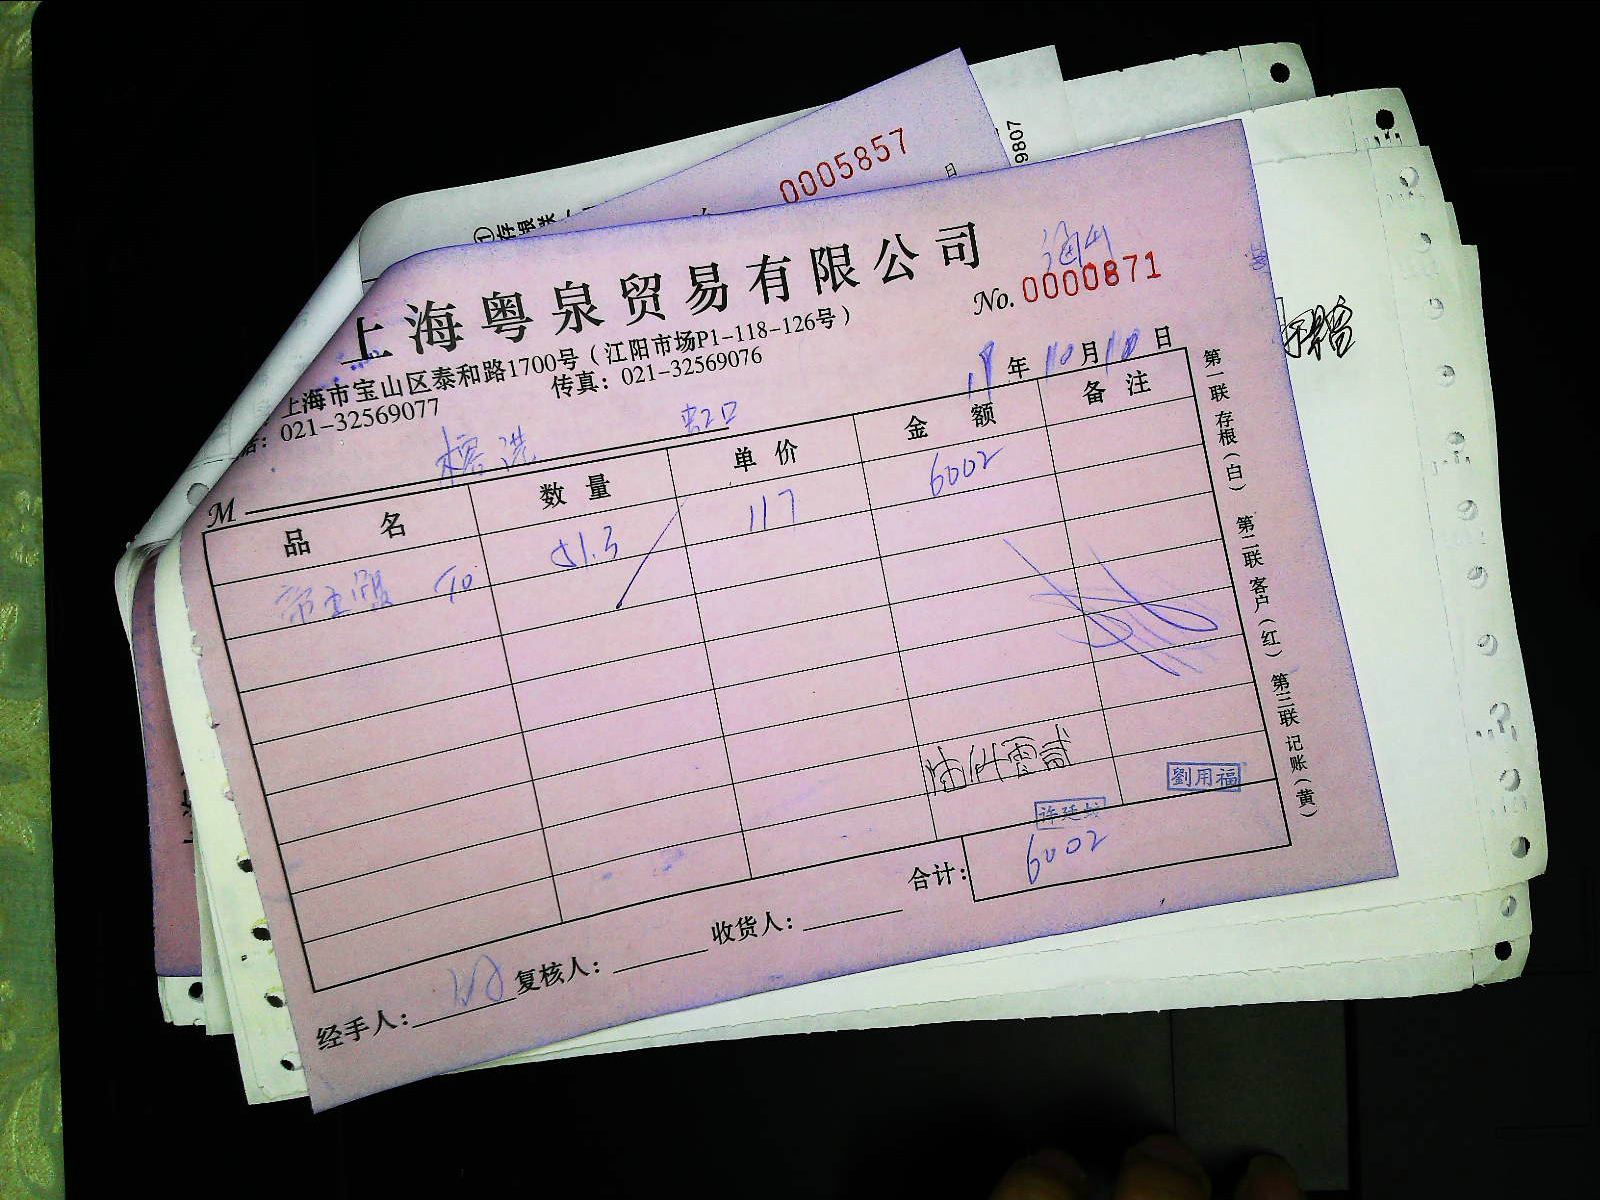 9807
0005857
日
上海粤泉贸易有限公司
No. 0000871
上海市宝山区泰和路1700号(江阳市场P1-118-126号)
021-32569077 传真: 021-32569076
年 10月10日
M
虹口
品名 数量 单价 金额 备注
51.3 117 6002
第一联 存根(白) 第二联 客户(红) 第三联 记账(黄)
劉用福
合计: 6002
经手人: 复核人: 收货人: